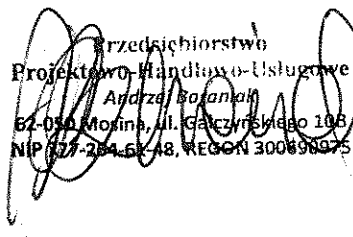 Przedsiębiorstwo
Projektowo-Handlowo-Usługowe
Andrzej
62-050 Mosina, ul. Gałczyńskiego 10B
NIP 777-264-61-48, REGON 300690975